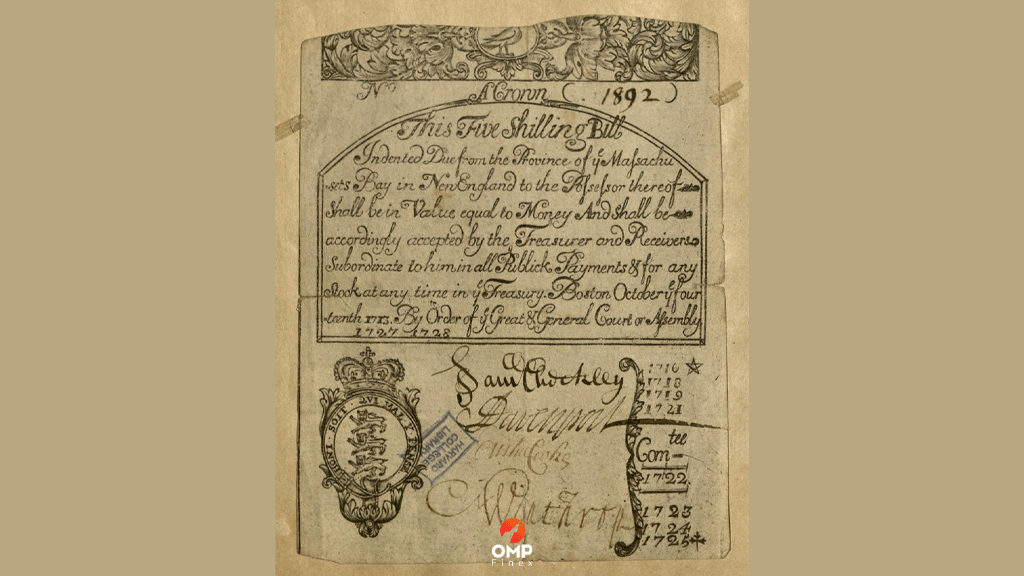 No A Crown (. 1892)
This Five Shilling Bill
Indented Due from the Province of ye Massachu
sets Bay in New England to the Possessor thereof
Shall be in Value equal to Money And Shall be
accordingly accepted by the Treasurer and Receivers
Subordinate to him in all Publick Payments & for any
Stock at any time in ye Treasury. Boston October ye four
teenth 1713. By Order of ye Great & General Court or Assembly
1727 1728
HONI · SOIT · QVI MAL Y PENSE
Sam Checkley
Davenport
Winthrop
HARVARD
COLLEGE
LIBRARY
1716
1718
1719
1721
Com-tee
1722.
1723
1724
1725
OMP
Finex